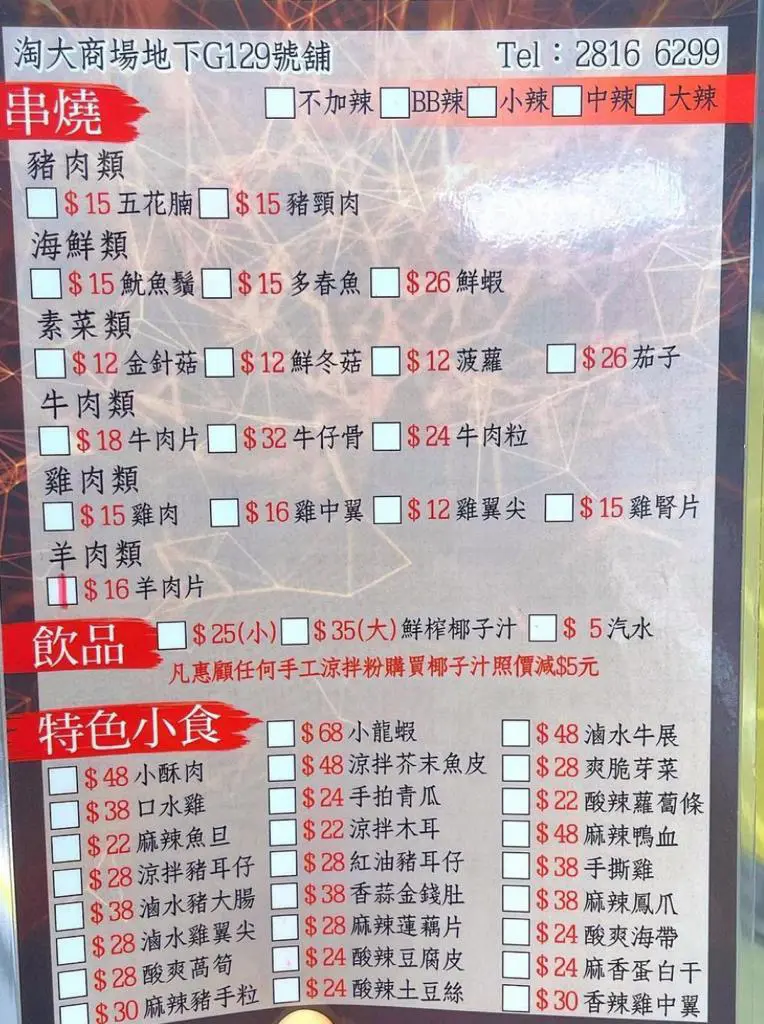 淘大商場地下G129號舖 Tel：2816 6299
串燒 不加辣 BB辣 小辣 中辣 大辣
豬肉類
$15五花腩 $15豬頸肉
海鮮類
$15魷魚鬚 $15多春魚 $26鮮蝦
素菜類
$12金針菇 $12鮮冬菇 $12菠蘿 $26茄子
牛肉類
$18牛肉片 $32牛仔骨 $24牛肉粒
雞肉類
$15雞肉 $16雞中翼 $12雞翼尖 $15雞腎片
羊肉類
$16羊肉片
飲品 $25(小) $35(大)鮮榨椰子汁 $5汽水
凡惠顧任何手工涼拌粉購買椰子汁照價減$5元
特色小食
$48小酥肉
$38口水雞
$22麻辣魚旦
$28涼拌豬耳仔
$38滷水豬大腸
$28滷水雞翼尖
$28酸爽萵筍
$30麻辣豬手粒
$68小龍蝦
$48涼拌芥末魚皮
$24手拍青瓜
$22涼拌木耳
$28紅油豬耳仔
$38香蒜金錢肚
$28麻辣蓮藕片
$24酸辣豆腐皮
$24酸辣土豆絲
$48滷水牛展
$28爽脆芽菜
$22酸辣蘿蔔條
$48麻辣鴨血
$38手撕雞
$38麻辣鳳爪
$24酸爽海帶
$24麻香蛋白干
$30香辣雞中翼